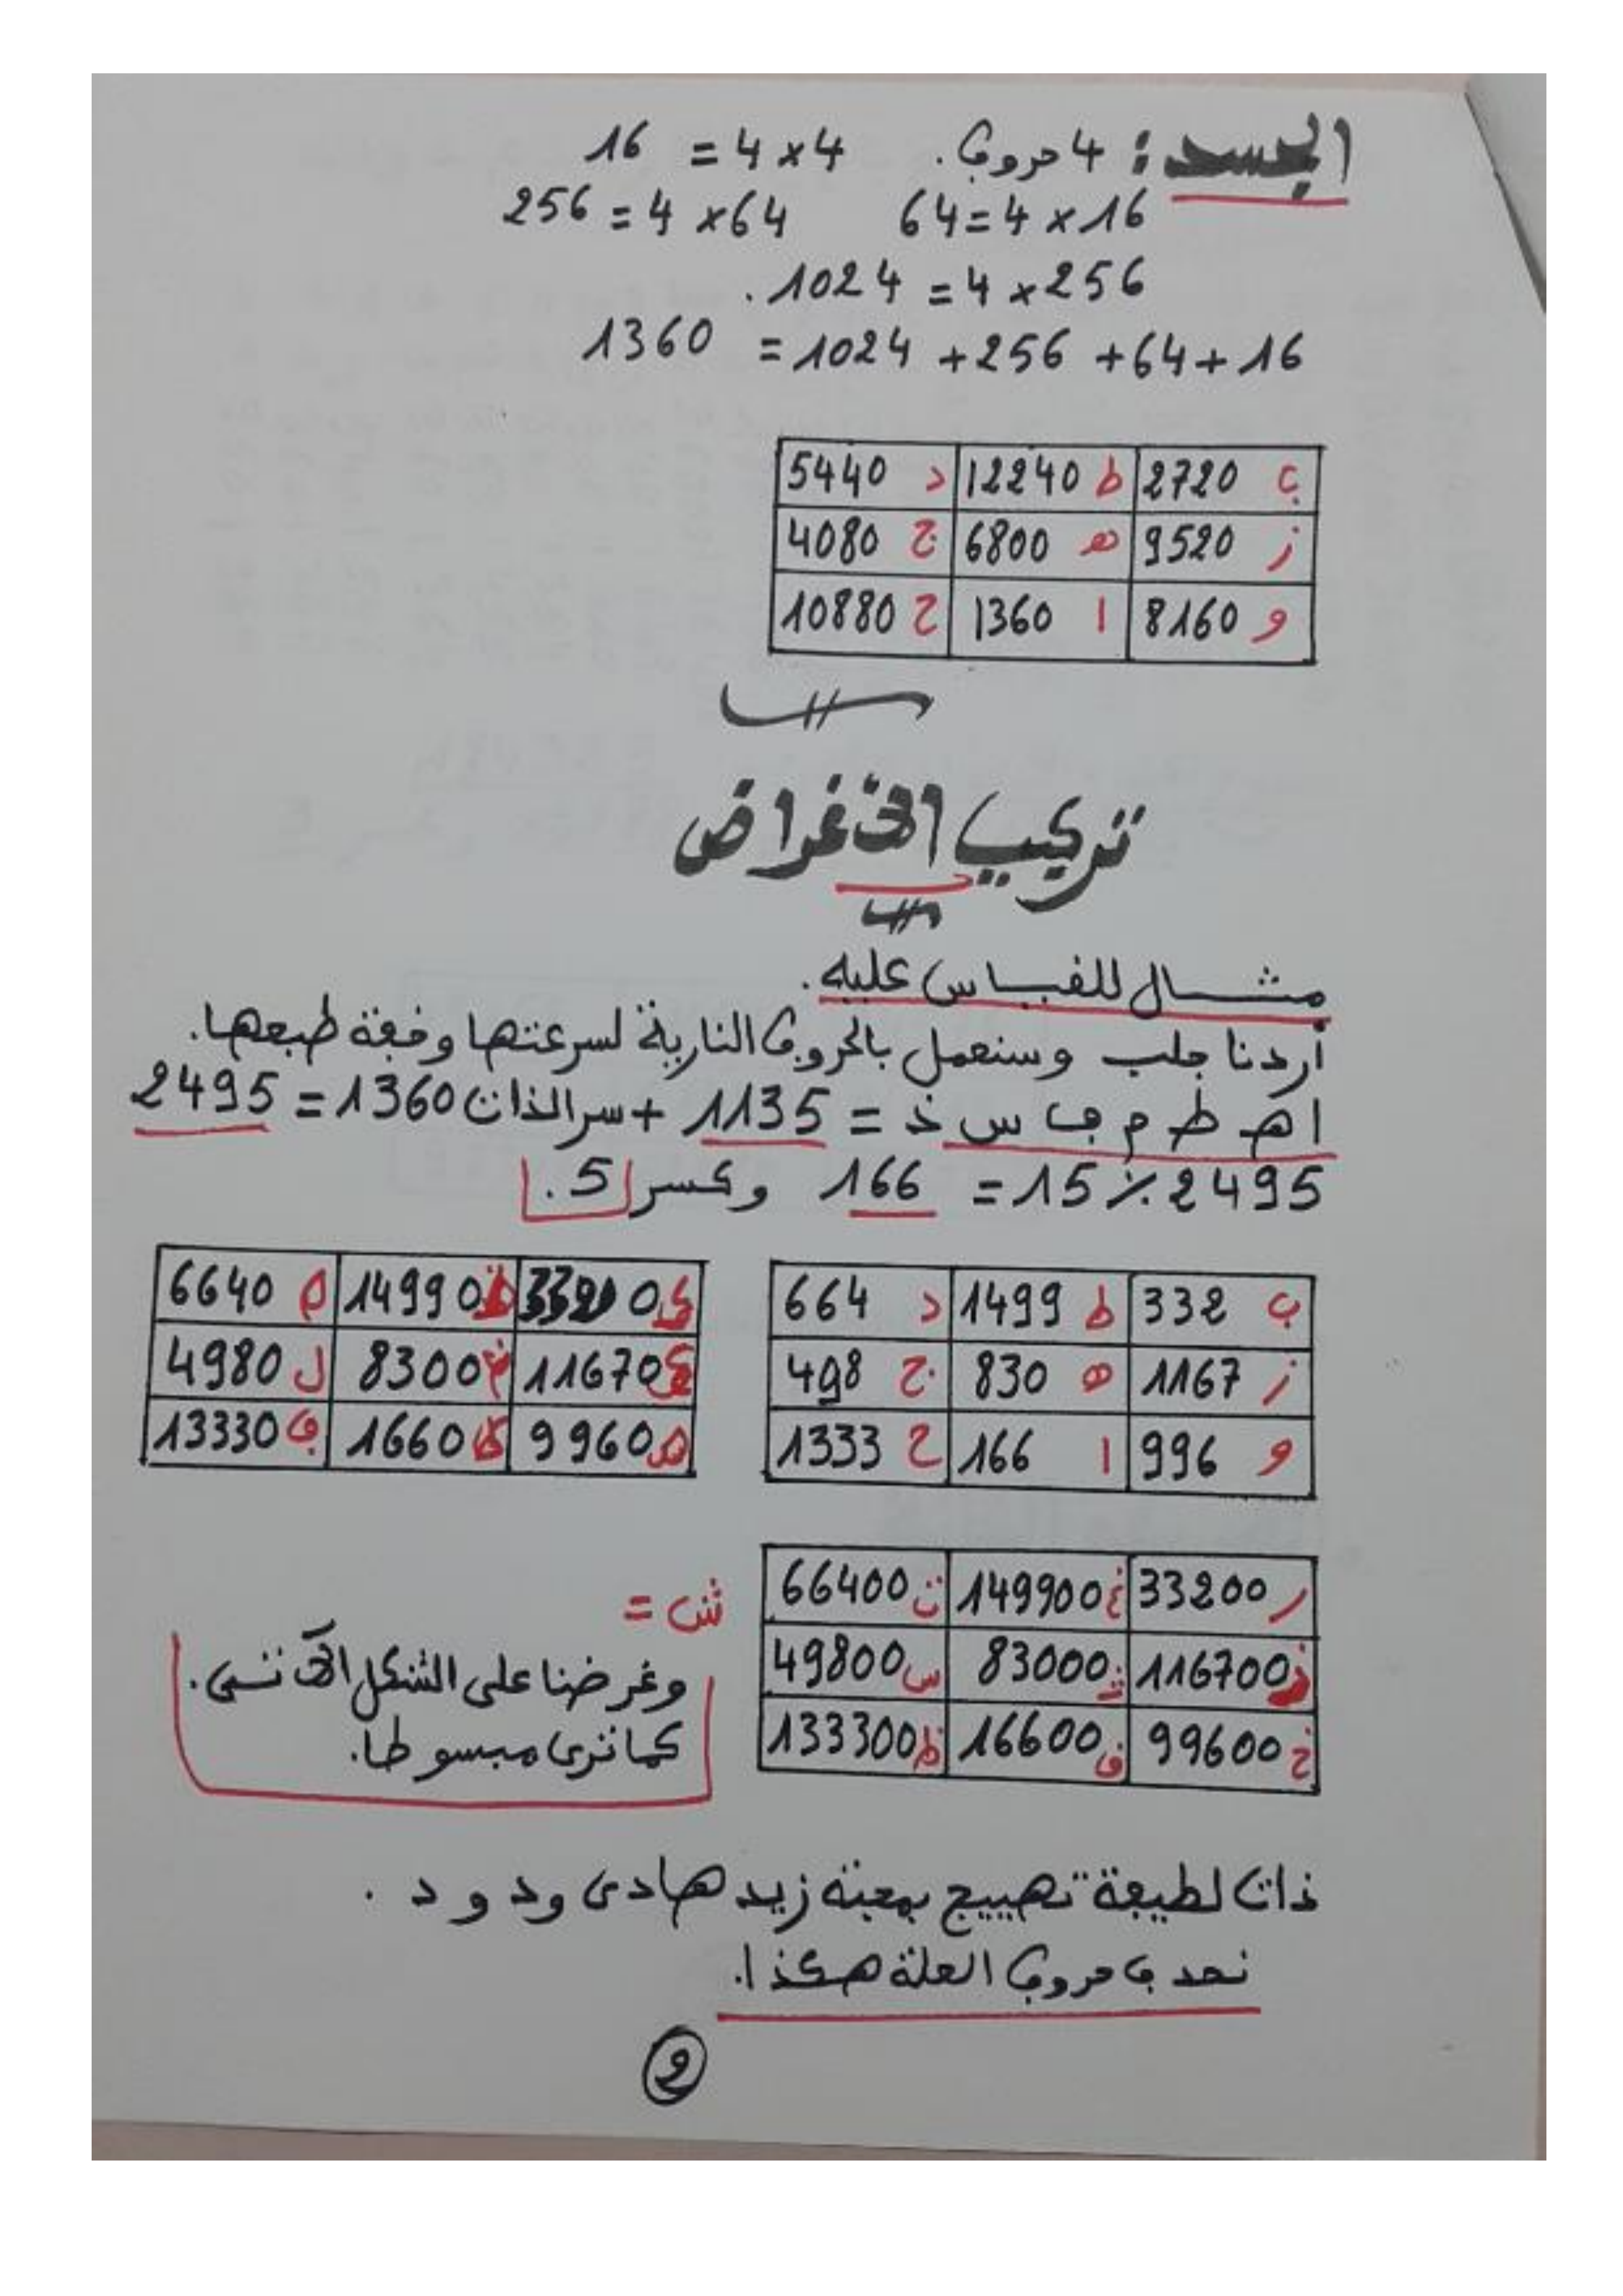 الجسد : 4 حروف. 4 × 4 = 16
16 × 4 = 64 64 × 4 = 256
256 × 4 = 1024 .
16 + 64 + 256 + 1024 = 1360
ب 2720 ط 12240 د 5440
ز 9520 هـ 6800 ج 4080
و 8160 ا 1360 ح 10880
تركيب الاغراض
مثال للقياس عليه.
أردنا جلب وسنعمل بالحروف النارية لسرعتها وخفة طبعها.
ا هـ ط م ف س ذ = 1135 + سر الذات 1360 = 2495
2495 ٪ 15 = 166 وكسر 5 .
ب 332 ط 1499 د 664
ز 1167 هـ 830 ج 498
و 996 ا 166 ح 1333
33200 14990 م 6640
11670 8300 ل 4980
9960 1660 ف 13330
ر 33200 غ 149900 ت 66400
ذ 116700 ث 83000 س 49800
خ 99600 ق 16600 ظ 133300
ش =
وغرضنا على الشكل الآتي.
كما ترى مبسوطا.
ذات لطيفة تهييج بمحبة زيد هادى ودود .
نحدف حروف العلة هكذا.
2